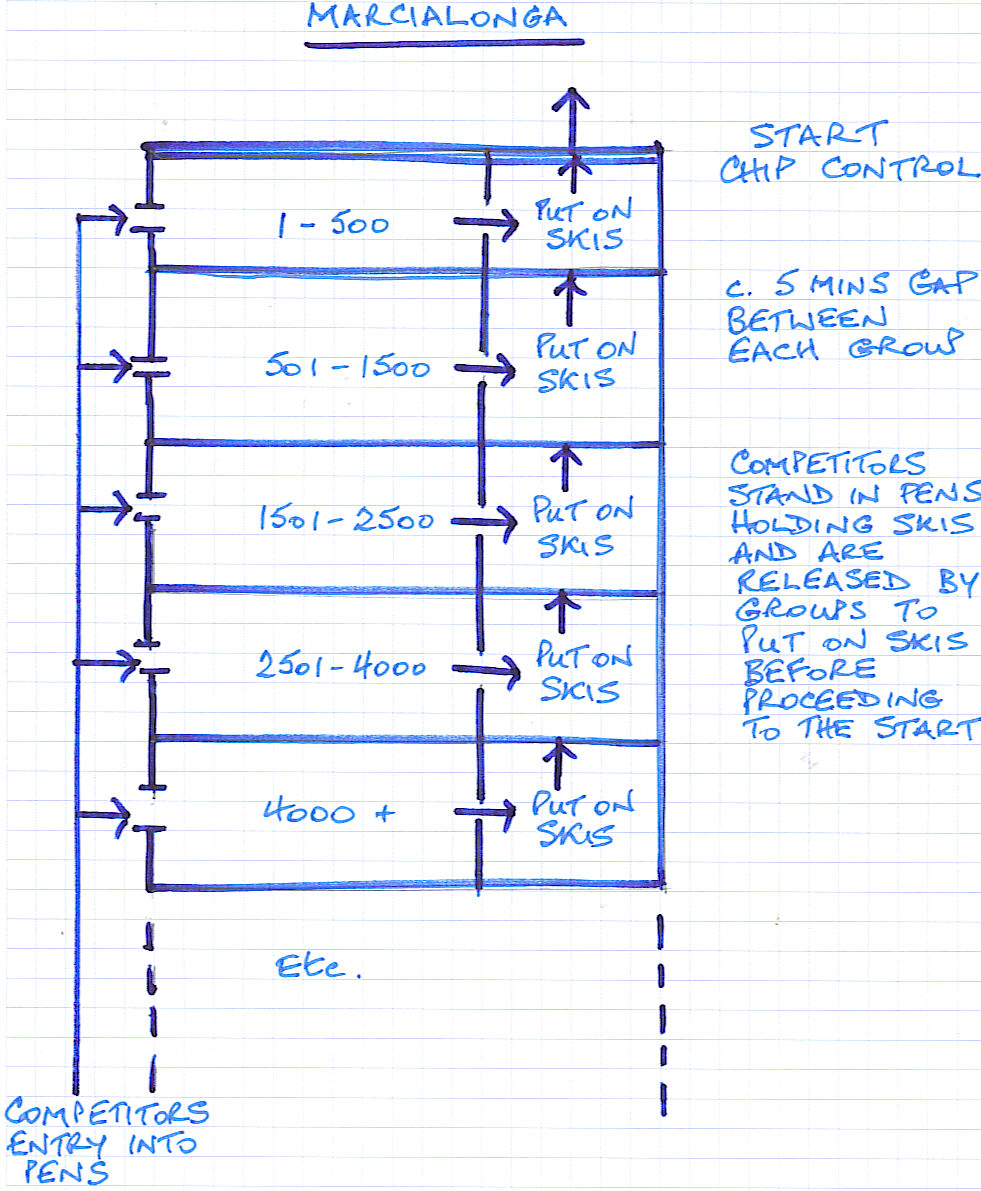 MARCIALONGA
START
CHIP CONTROL
1 - 500
PUT ON
SKIS
C. 5 MINS GAP
BETWEEN
EACH GROUP
501 - 1500
PUT ON
SKIS
COMPETITORS
STAND IN PENS
HOLDING SKIS
AND ARE
RELEASED BY
GROUPS TO
PUT ON SKIS
BEFORE
PROCEEDING
TO THE START
1501 - 2500
PUT ON
SKIS
2501 - 4000
PUT ON
SKIS
4000 +
PUT ON
SKIS
Etc.
COMPETITORS
ENTRY INTO
PENS